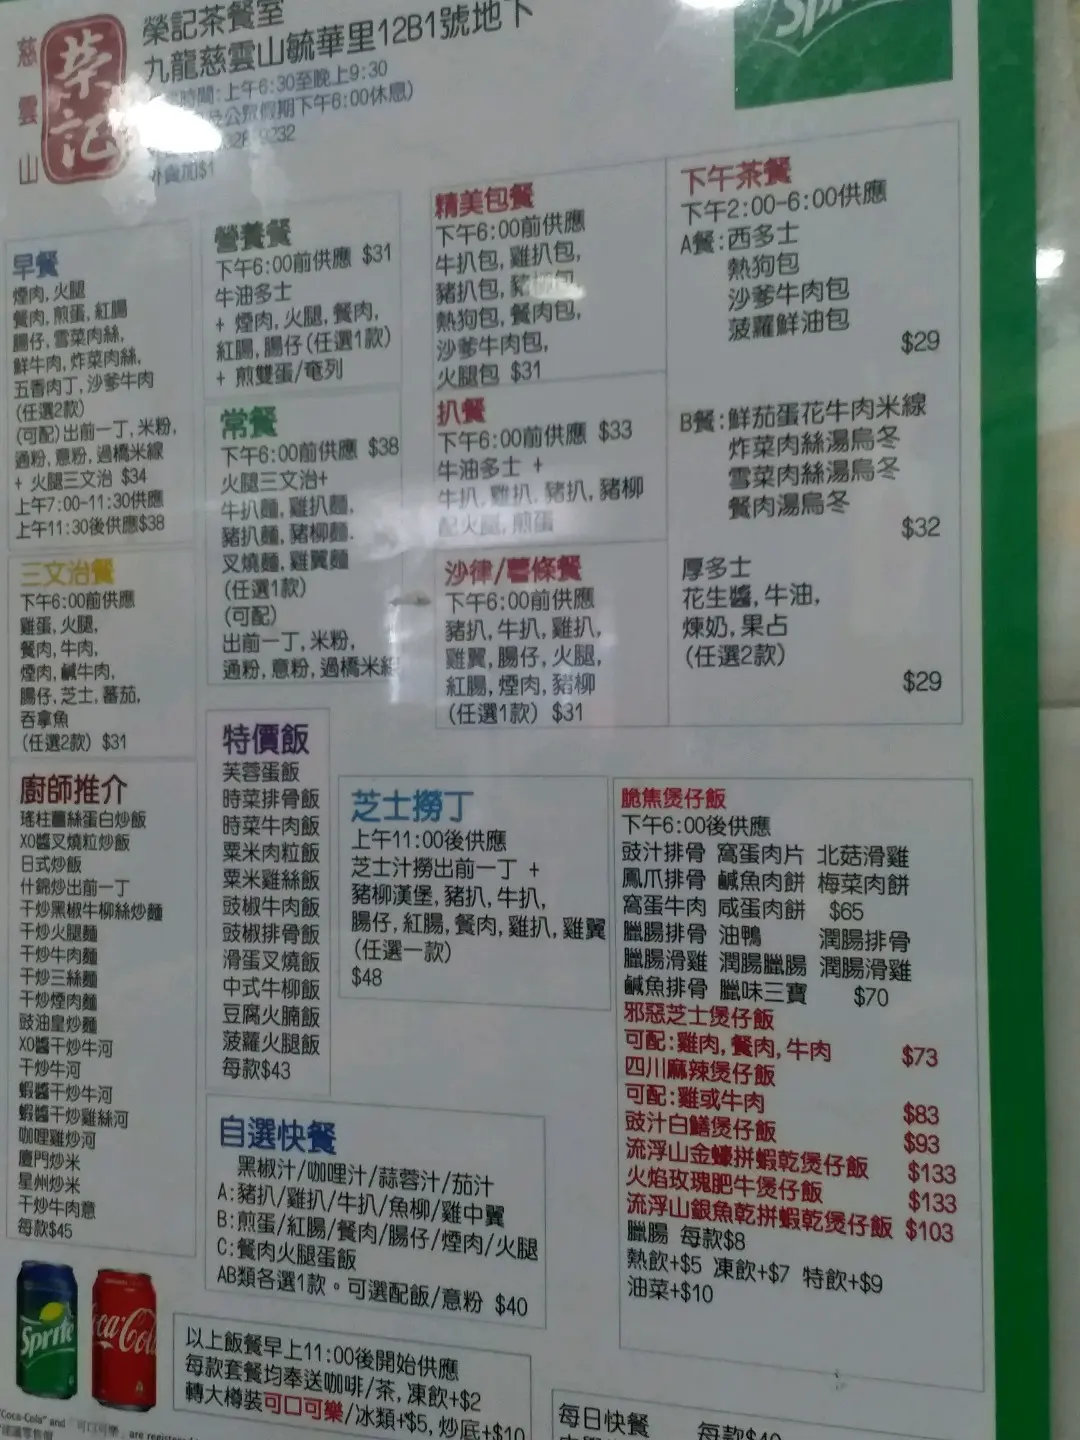 慈雲山
榮記
榮記茶餐室
九龍慈雲山毓華里12B1號地下
時間:上午6:30至晚上9:30
公眾假期下午6:00休息)
外賣加$1
早餐
煙肉,火腿
餐肉,煎蛋,紅腸
腸仔,雪菜肉絲,
鮮牛肉,炸菜肉絲,
五香肉丁,沙爹牛肉
(任選2款)
(可配)出前一丁,米粉,
通粉,意粉,過橋米線
+ 火腿三文治 $34
上午7:00-11:30供應
上午11:30後供應$38
三文治餐
下午6:00前供應
雞蛋,火腿,
餐肉,牛肉,
煙肉,鹹牛肉,
腸仔,芝士,蕃茄,
吞拿魚
(任選2款) $31
廚師推介
瑤柱薑絲蛋白炒飯
XO醬叉燒粒炒飯
日式炒飯
什錦炒出前一丁
干炒黑椒牛柳絲炒麵
干炒火腿麵
干炒牛肉麵
干炒三絲麵
干炒煙肉麵
豉油皇炒麵
XO醬干炒牛河
干炒牛河
蝦醬干炒牛河
蝦醬干炒雞絲河
咖喱雞炒河
廈門炒米
星州炒米
干炒牛肉意
每款$45
營養餐
下午6:00前供應 $31
牛油多士
+ 煙肉,火腿,餐肉,
紅腸,腸仔(任選1款)
+ 煎雙蛋/奄列
常餐
下午6:00前供應 $38
火腿三文治+
牛扒麵,雞扒麵,
豬扒麵,豬柳麵.
叉燒麵,雞翼麵
(任選1款)
(可配)
出前一丁,米粉,
通粉,意粉,過橋米線
特價飯
芙蓉蛋飯
時菜排骨飯
時菜牛肉飯
粟米肉粒飯
粟米雞絲飯
豉椒牛肉飯
豉椒排骨飯
滑蛋叉燒飯
中式牛柳飯
豆腐火腩飯
菠蘿火腿飯
每款$43
精美包餐
下午6:00前供應
牛扒包,雞扒包,
豬扒包,豬柳包,
熱狗包,餐肉包,
沙爹牛肉包,
火腿包 $31
扒餐
下午6:00前供應 $33
牛油多士 +
牛扒,雞扒,豬扒,豬柳
配火腿,煎蛋
沙律/薯條餐
下午6:00前供應
豬扒,牛扒,雞扒,
雞翼,腸仔,火腿,
紅腸,煙肉,豬柳
(任選1款) $31
下午茶餐
下午2:00-6:00供應
A餐:西多士
熱狗包
沙爹牛肉包
菠蘿鮮油包
$29
B餐:鮮茄蛋花牛肉米線
炸菜肉絲湯烏冬
雪菜肉絲湯烏冬
餐肉湯烏冬
$32
厚多士
花生醬,牛油,
煉奶,果占
(任選2款)
$29
芝士撈丁
上午11:00後供應
芝士汁撈出前一丁 +
豬柳漢堡,豬扒,牛扒,
腸仔,紅腸,餐肉,雞扒,雞翼
(任選一款)
$48
脆焦煲仔飯
下午6:00後供應
豉汁排骨 窩蛋肉片 北菇滑雞
鳳爪排骨 鹹魚肉餅 梅菜肉餅
窩蛋牛肉 咸蛋肉餅 $65
臘腸排骨 油鴨 潤腸排骨
臘腸滑雞 潤腸臘腸 潤腸滑雞
鹹魚排骨 臘味三寶 $70
邪惡芝士煲仔飯
可配:雞肉,餐肉,牛肉 $73
四川麻辣煲仔飯
可配:雞或牛肉 $83
豉汁白鱔煲仔飯 $93
流浮山金蠔拼蝦乾煲仔飯 $133
火焰玫瑰肥牛煲仔飯 $133
流浮山銀魚乾拼蝦乾煲仔飯 $103
臘腸 每款$8
熱飲+$5 凍飲+$7 特飲+$9
油菜+$10
自選快餐
黑椒汁/咖喱汁/蒜蓉汁/茄汁
A:豬扒/雞扒/牛扒/魚柳/雞中翼
B:煎蛋/紅腸/餐肉/腸仔/煙肉/火腿
C:餐肉火腿蛋飯
AB類各選1款。可選配飯/意粉 $40
以上飯餐早上11:00後開始供應
每款套餐均奉送咖啡/茶,凍飲+$2
轉大樽裝可口可樂/冰類+$5,炒底+$10
Sprite
Coca-Cola
"Coca-Cola" and 「可口可樂」 are
每日快餐 每款$40